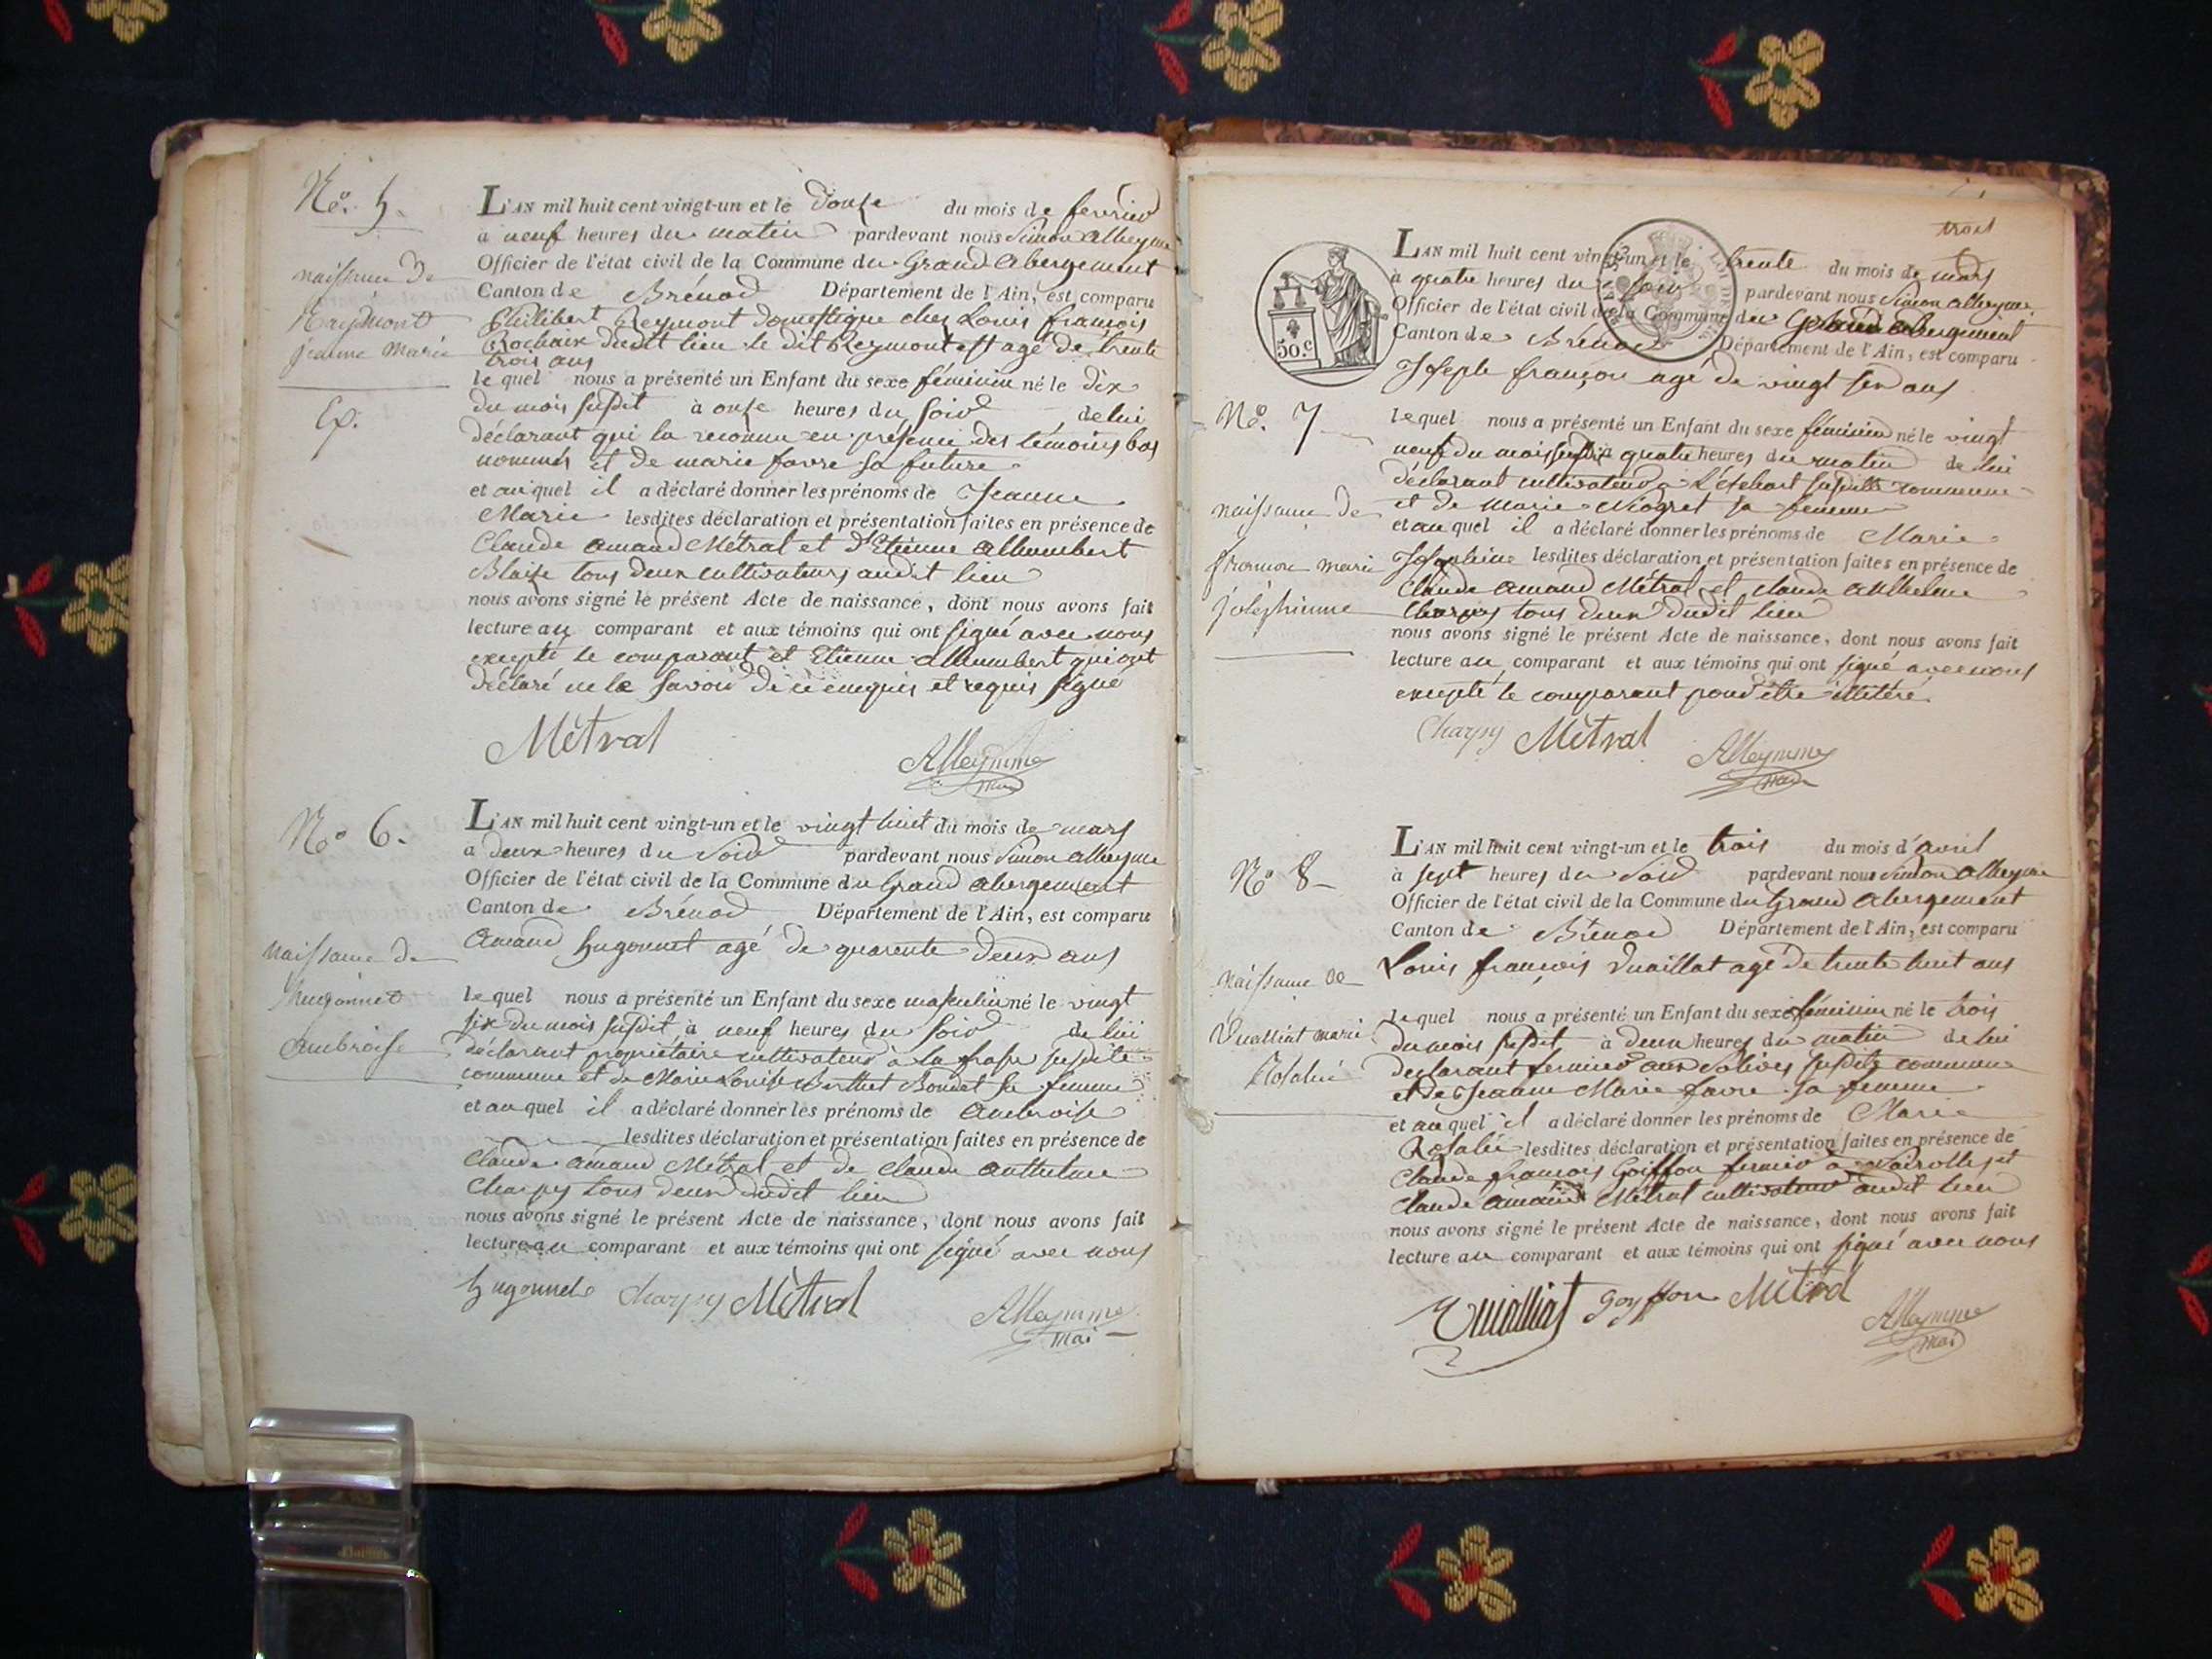 No. 5.
naissance de
Raymont
jeanne Marie
Ep.
L'AN mil huit cent vingt-un et le douse du mois de fevrier
à neuf heures du matin pardevant nous Simon alleyme
Officier de l'état civil de la Commune du Grand abergement
Canton de Brénod Département de l'Ain, est comparu
Philibert Reymont domestique chez Louis françois
Rochaix dudit lieu le dit Reymont est agé de trente
trois ans
lequel nous a présenté un Enfant du sexe féminin né le dix
du mois susdit à onse heures du soir de lui
déclarant qui la reconnu en présence des témoins bas
nommés et de marie favre sa future
et auquel il a déclaré donner les prénoms de Jeanne
Marie lesdites déclaration et présentation faites en présence de
Claude amand Métral et d'Etienne allhumbert
Blaise tous deux cultivateurs audit lieu
nous avons signé le présent Acte de naissance, dont nous avons fait
lecture au comparant et aux témoins qui ont signé avec nous
excepté le comparant et Etienne allhumbert qui ont
déclaré ne le savoir de ce enquis et requis signé
Métral
Alleymme
mair
No 6.
naissance de
hugonnet
ambroise
L'AN mil huit cent vingt-un et le vingt huit du mois de mars
à deux heures du soir pardevant nous Simon alleyme
Officier de l'état civil de la Commune du Grand abergement
Canton de Brénod Département de l'Ain, est comparu
amand hugonnet agé de quarente deux ans
lequel nous a présenté un Enfant du sexe masculin né le vingt
six du mois susdit à neuf heures du soir de lui
déclarant propriétaire cultivateur à la susdite
commune et de Marie Louise Berthet Bondet sa femme
et auquel il a déclaré donner les prénoms de ambroise
lesdites déclaration et présentation faites en présence de
Claude amand Métral et de Claude anthelme
Charpy tous deux dudit lieu
nous avons signé le présent Acte de naissance, dont nous avons fait
lecture au comparant et aux témoins qui ont signé avec nous
hugonnet Charpy Métral
Alleymme
mair
trois
50.c
L'AN mil huit cent vingt-un et le trente du mois de mars
à quatre heures du soir pardevant nous Simon alleyme
Officier de l'état civil de la Commune du Grand abergement
Canton de Brénod Département de l'Ain, est comparu
Joseph françon agé de vingt six ans
No. 7
naissance de
francon marie
joséphienne
lequel nous a présenté un Enfant du sexe féminin né le vingt
neuf du mois susdit à quatre heures du matin de lui
déclarant cultivateur à susditte commune
et de Marie Niogret sa femme
et auquel il a déclaré donner les prénoms de Marie
Joséphine lesdites déclaration et présentation faites en présence de
Claude amand Métral et claude anthelme
Charpy tous deux dudit lieu
nous avons signé le présent Acte de naissance, dont nous avons fait
lecture au comparant et aux témoins qui ont signé avec nous
excepté le comparant pour être illitéré
Charpy Métral
Alleymme
mair
No 8
naissance de
Vuailliat marie
Rosalie
L'AN mil huit cent vingt-un et le trois du mois d'avril
à sept heures du soir pardevant nous Simon alleyme
Officier de l'état civil de la Commune du Grand abergement
Canton de Brénod Département de l'Ain, est comparu
Louis françois Vuaillat agé de trente huit ans
lequel nous a présenté un Enfant du sexe féminin né le trois
du mois susdit à deux heures du matin de lui
declarant fermier aux Solives susdite commune
et de Jeanne Marie favre sa femme
et auquel il a déclaré donner les prénoms de Marie
Rosalie lesdites déclaration et présentation faites en présence de
Claude françois Goiffon fermier à et
Claude amand Métral cultivateur audit lieu
nous avons signé le présent Acte de naissance, dont nous avons fait
lecture au comparant et aux témoins qui ont signé avec nous
Vuailliat Goyffon Métral
Alleymme
mair